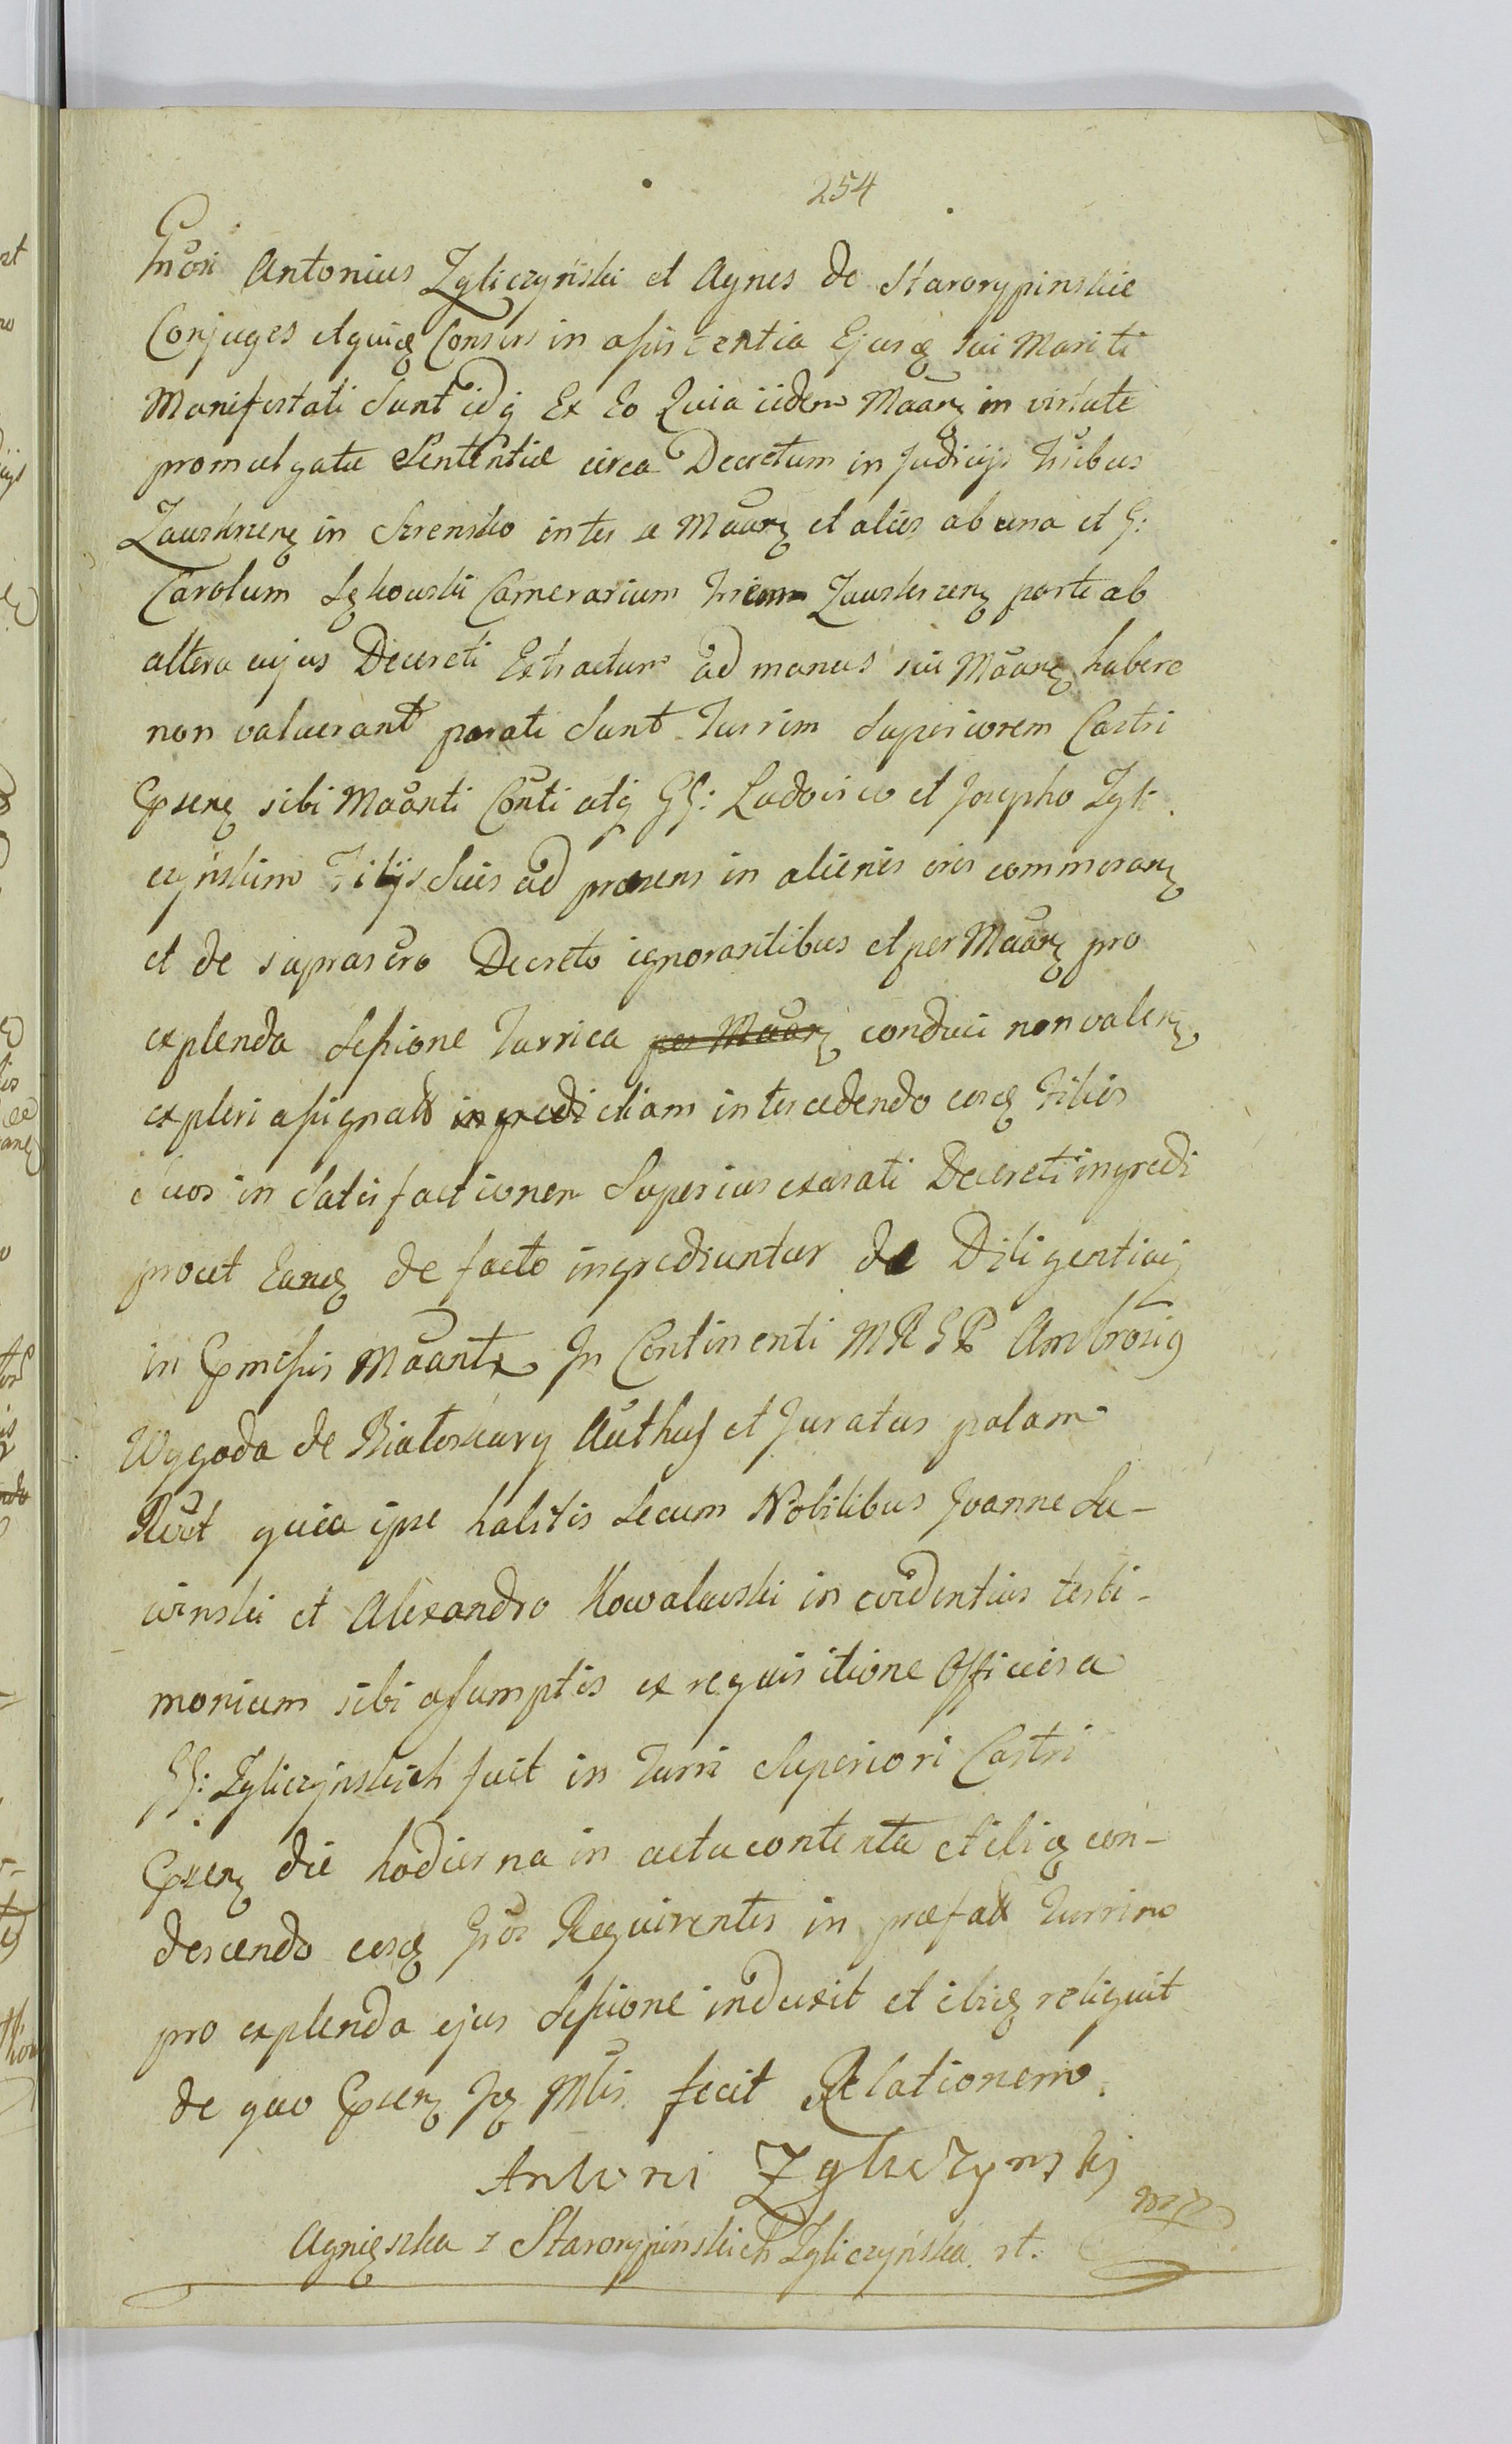 254
Gnosi Antonius Zgliczyński et Agnes de Starorypinskie
Conjuges eaque Consors in assistentia Ejusq sui Mariti
Manifestati sunt idq Ex Eo Quia iidem Maarz in virtute
promulgatæ Sententiæ circa Decretum in Judicijs Trribus
Zawskrzenz in Szrensko inter se Maarz et alios ab una et G:
Carolum Lękowski Camerarium Zawskrzenz parte ab
altera cujus Decreti Extractum ad manus sui Maarz habere
non valuerant parati sunt Turrim Superiorem Castri
sibi Maanti Conti atq GG: Ludovico et Josepho Zgli
czyńskim Filijs suis ad præsens in alienis oris commoranz
et de suprascro Decreto ignorantibus et per Maarz pro
explenda sessione Turrica per Maarz conduci non valenz
expleri assignats ingredi etiam intercedendo eosq Filios
suos in satisfactionem Superius exarati Decreti ingredi
prout Eamq de facto ingrediuntur de Diligentiaq
in præmissis Maante In Continenti MRSP Ambrosig
Wygoda de Białoskury Authus et Juratus palam
Recut quia ipse habitis secum Nobilibus Joanne Su-
winski et Alexandro Kowalewski in evidentius testi-
monium sibi assumptis ex requisitione Officiosa
GG: Zgliczynskich fuit in Turri Superiori Castri
die hodierna in actu contenta et ibiq con-
descendo eosq Gsos Requirentes in præfats Turrim
pro explenda ejus sessione induxit et ibiq reliquit
de quo Mtis fecit Relationem.
Antoni Zgliczynskj
mpp
Agnięszka z Starorypinskich Zgliczyńska st.